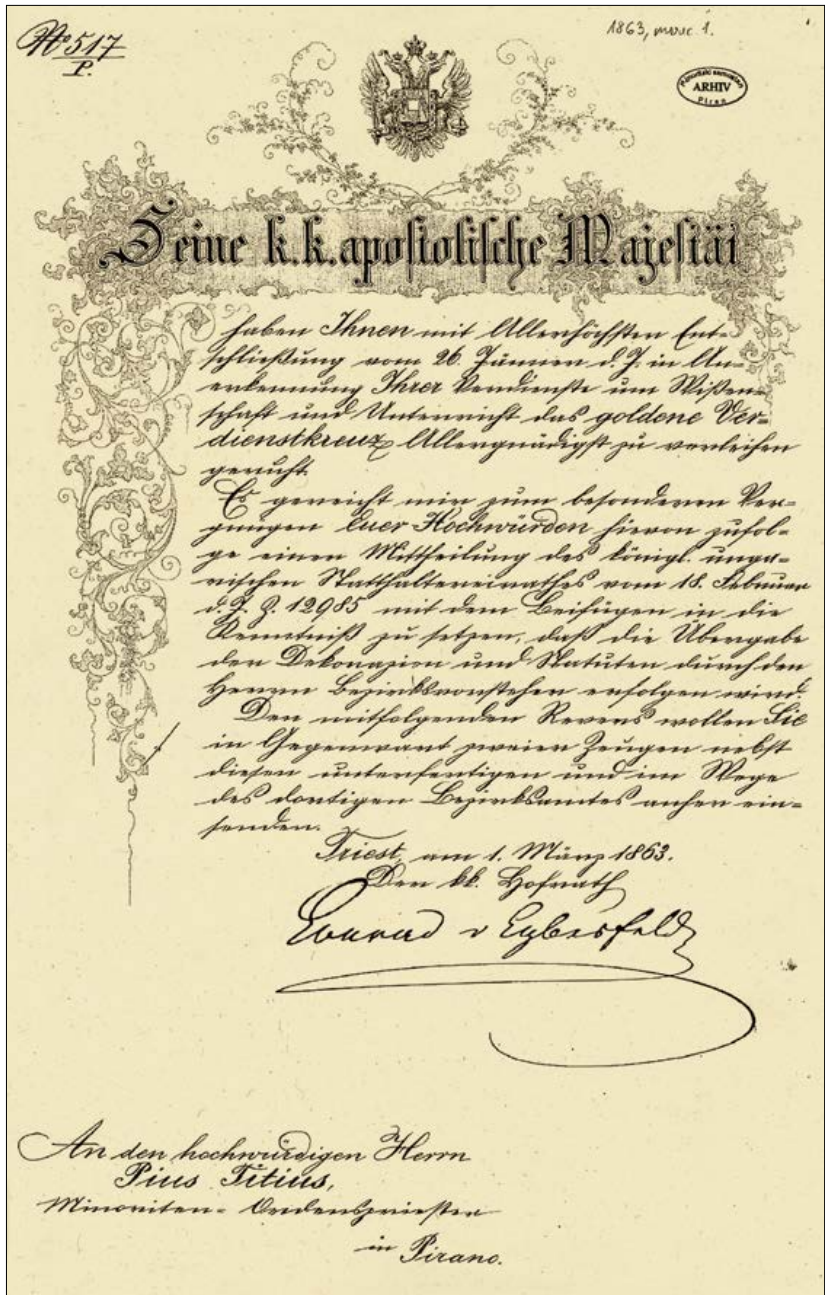 № 517
P.
1863, marc 1.
ARHIV
Piran
Seine k.k. apostolische Majestät
haben Ihnen mit Allerhöchster Ent-
schließung vom 26. Jänner d. J. in An-
erkennung Ihrer Verdienste um Wißen-
schaft und Unterricht das goldene Ver-
dienstkreuz Allergnädigst zu verleihen
geruht.
Es gereicht mir zum besonderen Ver-
gnügen Euer Hochwürden hievon zufol-
ge einer Mittheilung des königl. unga-
rischen Statthaltereirathes vom 18. Februar
d. J. Z. 12985 mit dem Beifügen in die
Kenntniß zu setzen, daß die Übergabe
der Dekorazion und Statuten durch den
Herrn Bezirksvorsteher erfolgen wird.
Den mitfolgenden Revers wollen Sie
in Gegenwart zweier Zeugen nebst
diesen unterfertigen und im Wege
des dortigen Bezirksamtes anher ein-
senden.
Triest, am 1. März 1863.
Der kk. Hofrath
Conrad v Eybesfeld
An den hochwürdigen Herrn
Pius Titius,
Minoriten-Ordenspriester
in Pirano.